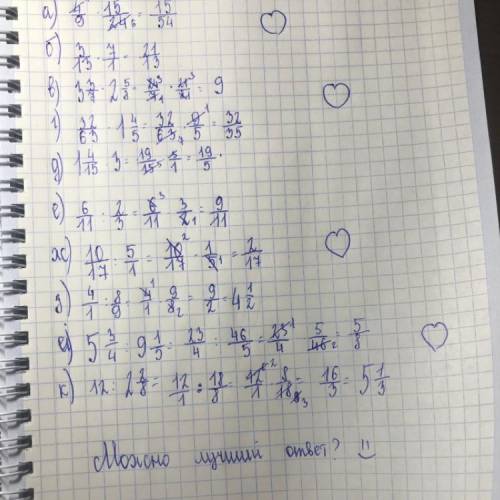 а) 4/9 · 15/24 6 = 15/54
б) 3/13 · 7/1 = 21/13
в) 3 3/7 · 2 5/8 = 24 3/7 1 · 21 3/8 1 = 9
г) 32/63 · 1 4/5 = 32/63 7 · 9 1/5 = 32/35
д) 1 4/15 · 3 = 19/15 5 · 3 1/1 = 19/5
е) 6/11 : 2/3 = 6 3/11 · 3/2 1 = 9/11
ж) 10/17 : 5/1 = 10 2/17 · 1/5 1 = 2/17
з) 4/1 : 8/9 = 4 1/1 · 9/8 2 = 9/2 = 4 1/2
и) 5 3/4 : 9 1/5 = 23/4 : 46/5 = 23 1/4 · 5/46 2 = 5/8
к) 12 : 2 2/8 = 12/1 : 18/8 = 12 2/1 · 8/18 3 = 16/3 = 5 1/3
Можно лучший ответ? =)